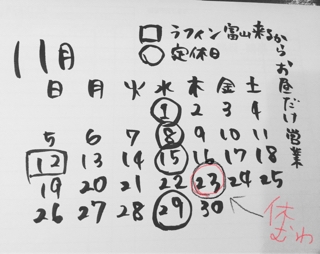 11月
□ ラフィン富山来るからお昼だけ営業
○ 定休日
日 月 火 水 木 金 土
1 2 3 4
5 6 7 8 9 10 11
12 13 14 15 16 17 18
19 20 21 22 23 24 25
26 27 28 29 30
休むわ